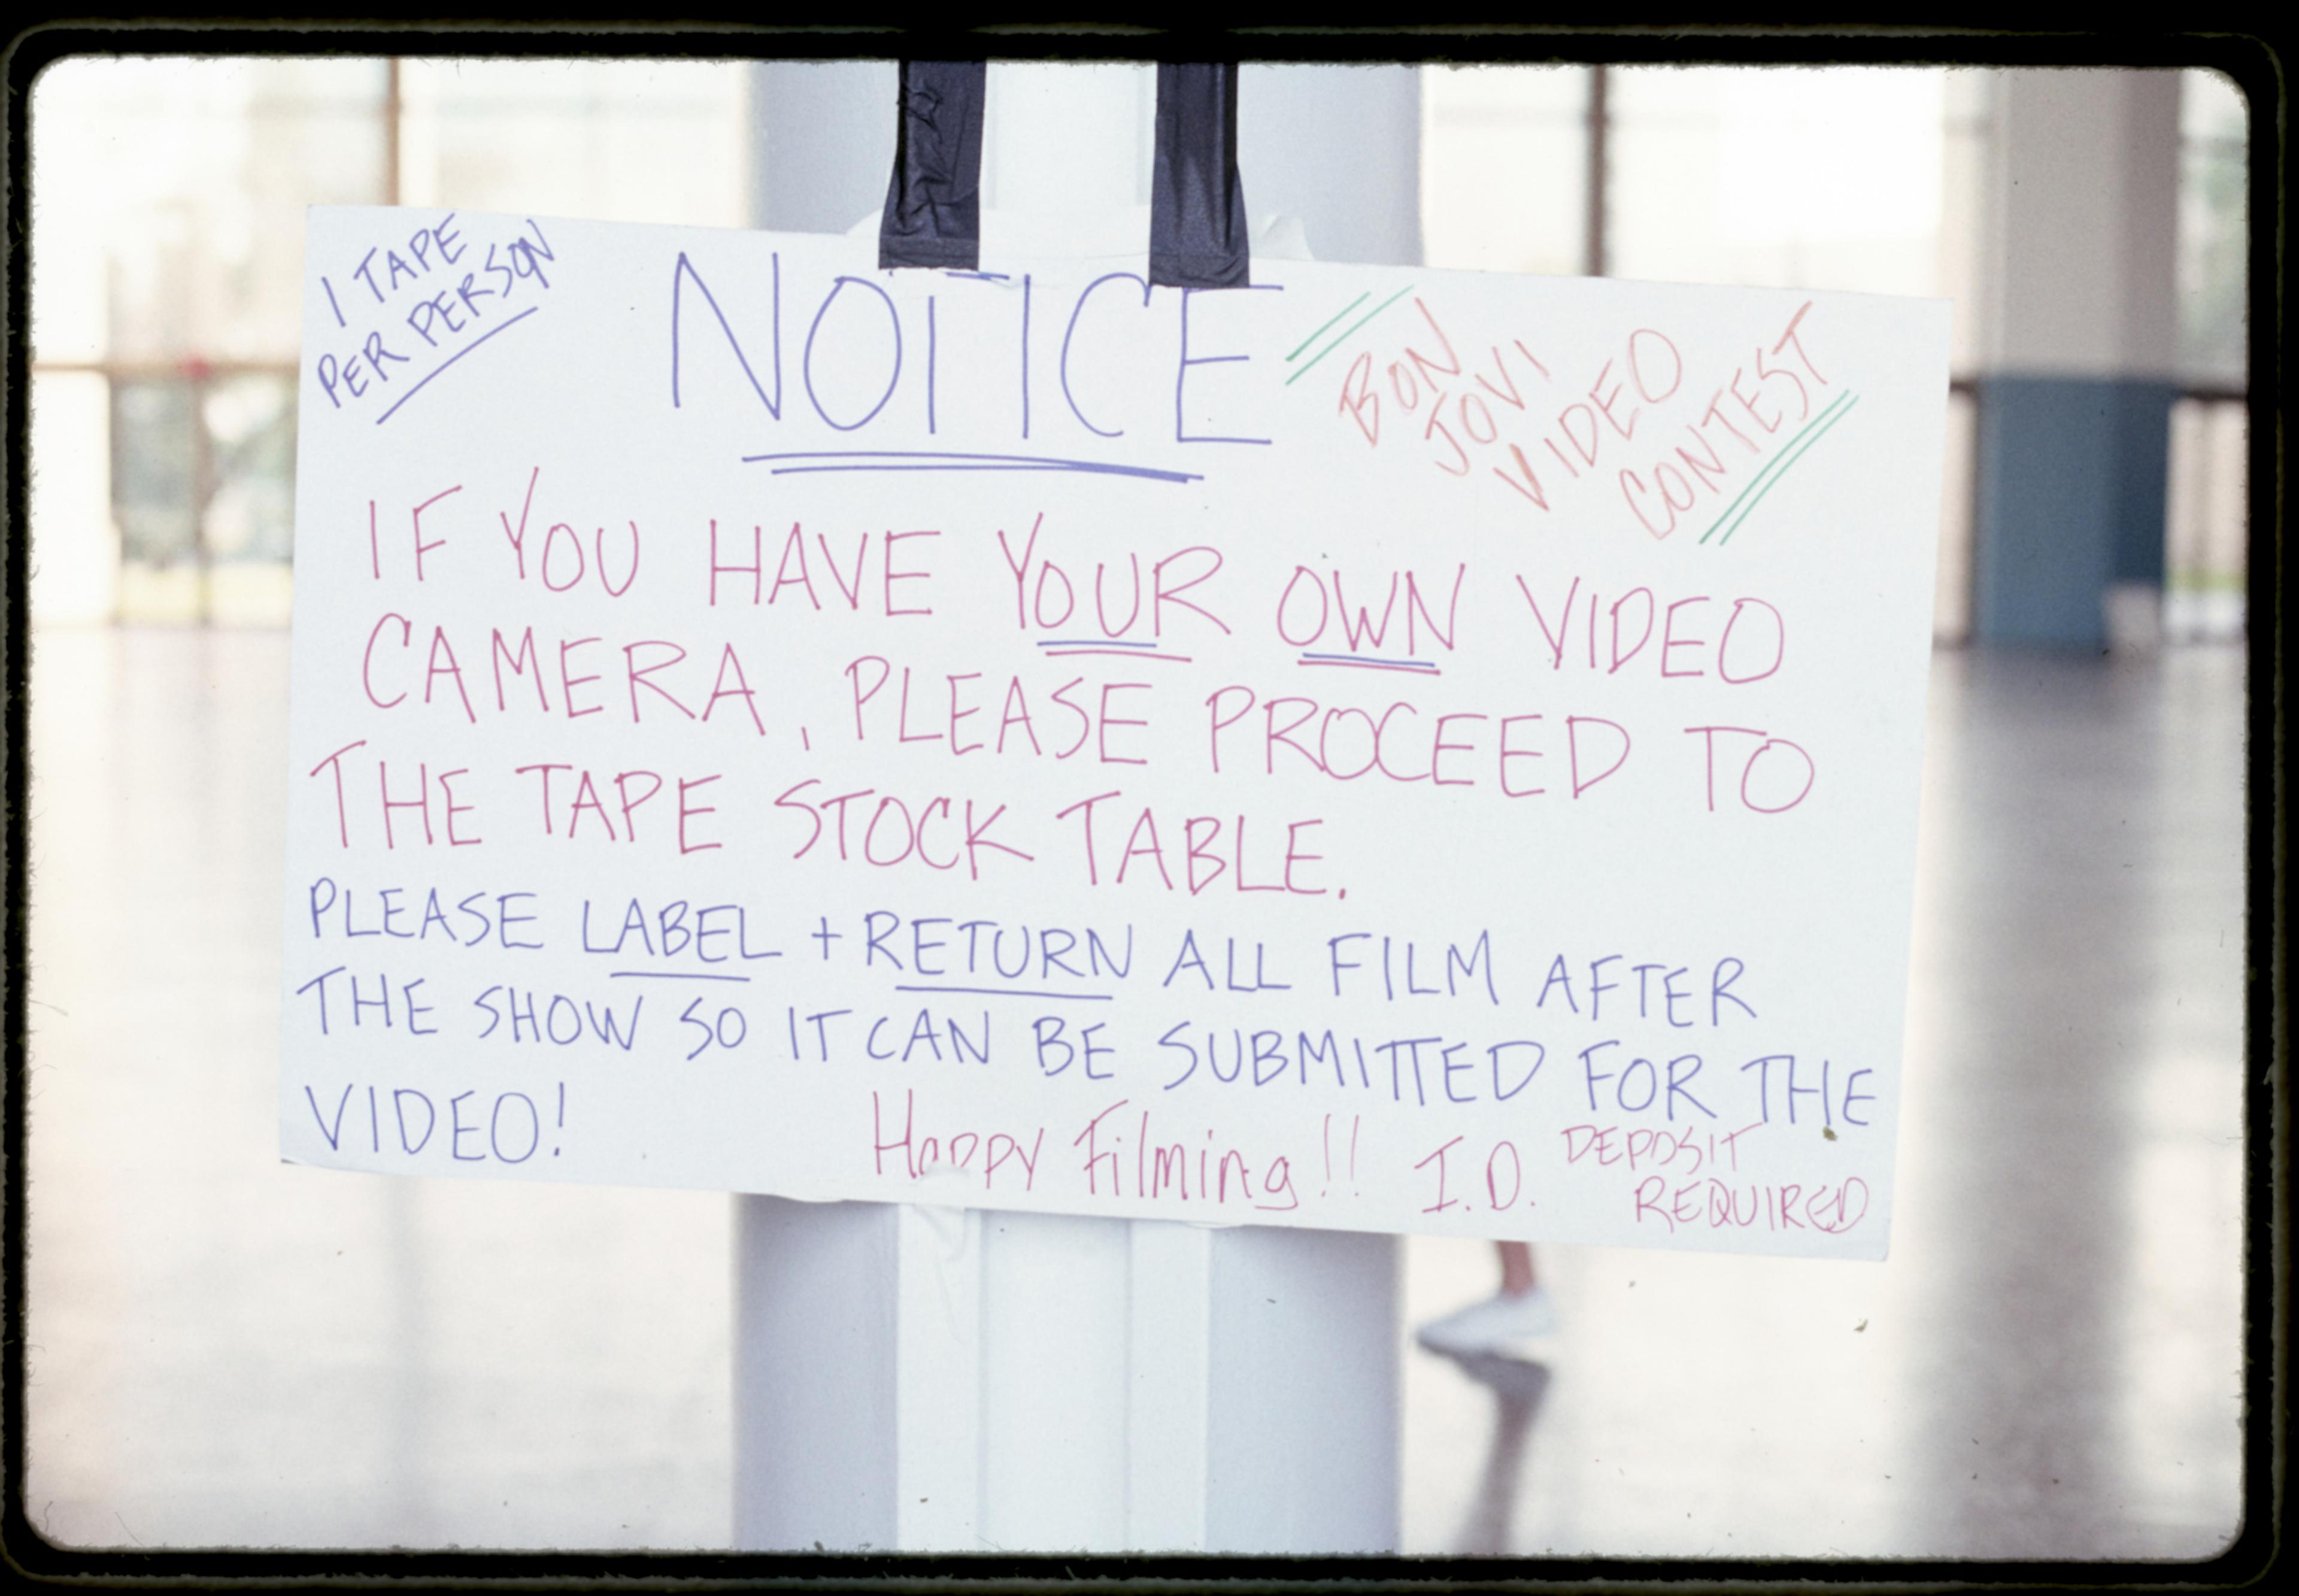 1 TAPE
PER PERSON
NOTICE
BON
JOVI
VIDEO
CONTEST
IF YOU HAVE YOUR OWN VIDEO
CAMERA, PLEASE PROCEED TO
THE TAPE STOCK TABLE.
PLEASE LABEL + RETURN ALL FILM AFTER
THE SHOW SO IT CAN BE SUBMITTED FOR THE
VIDEO!
Happy Filming!! I.D. DEPOSIT
REQUIRED